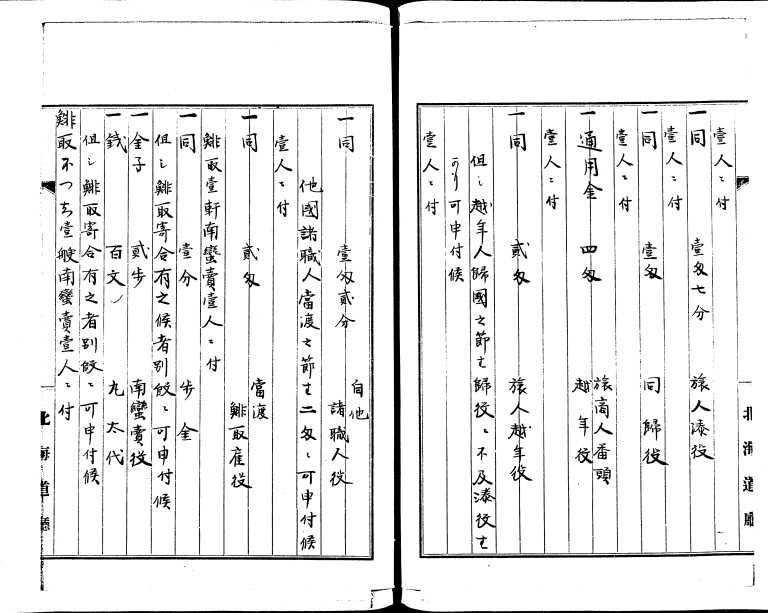 壹人ニ付
一同　壹匁七分　旅人湊役
壹人ニ付
一同　壹匁　同歸役
壹人ニ付
一適用金　四匁　旅商人番頭
越年役
壹人ニ付
一同　貳匁　旅人越年役
但シ越年人歸國之節も歸役ニ不及湊役も
可申付候
壹人ニ付
北海道廳
一同　壹匁貳分　自他
諸職人役
他國諸職人當渡之節も二匁ニ可申付候
壹人ニ付
一同　貳匁　當渡
鯡取雇役
鯡取壹軒南蠻賣壹人ニ付
一同　壹分　步金
但シ鯡取寄合有之候者別段ニ可申付候
一金子　貳步　南蠻賣役
一錢　百文　九太代
但シ鯡取寄合有之者別段ニ可申付候
鯡取不つち壹艘南蠻賣壹人ニ付
北海道廳